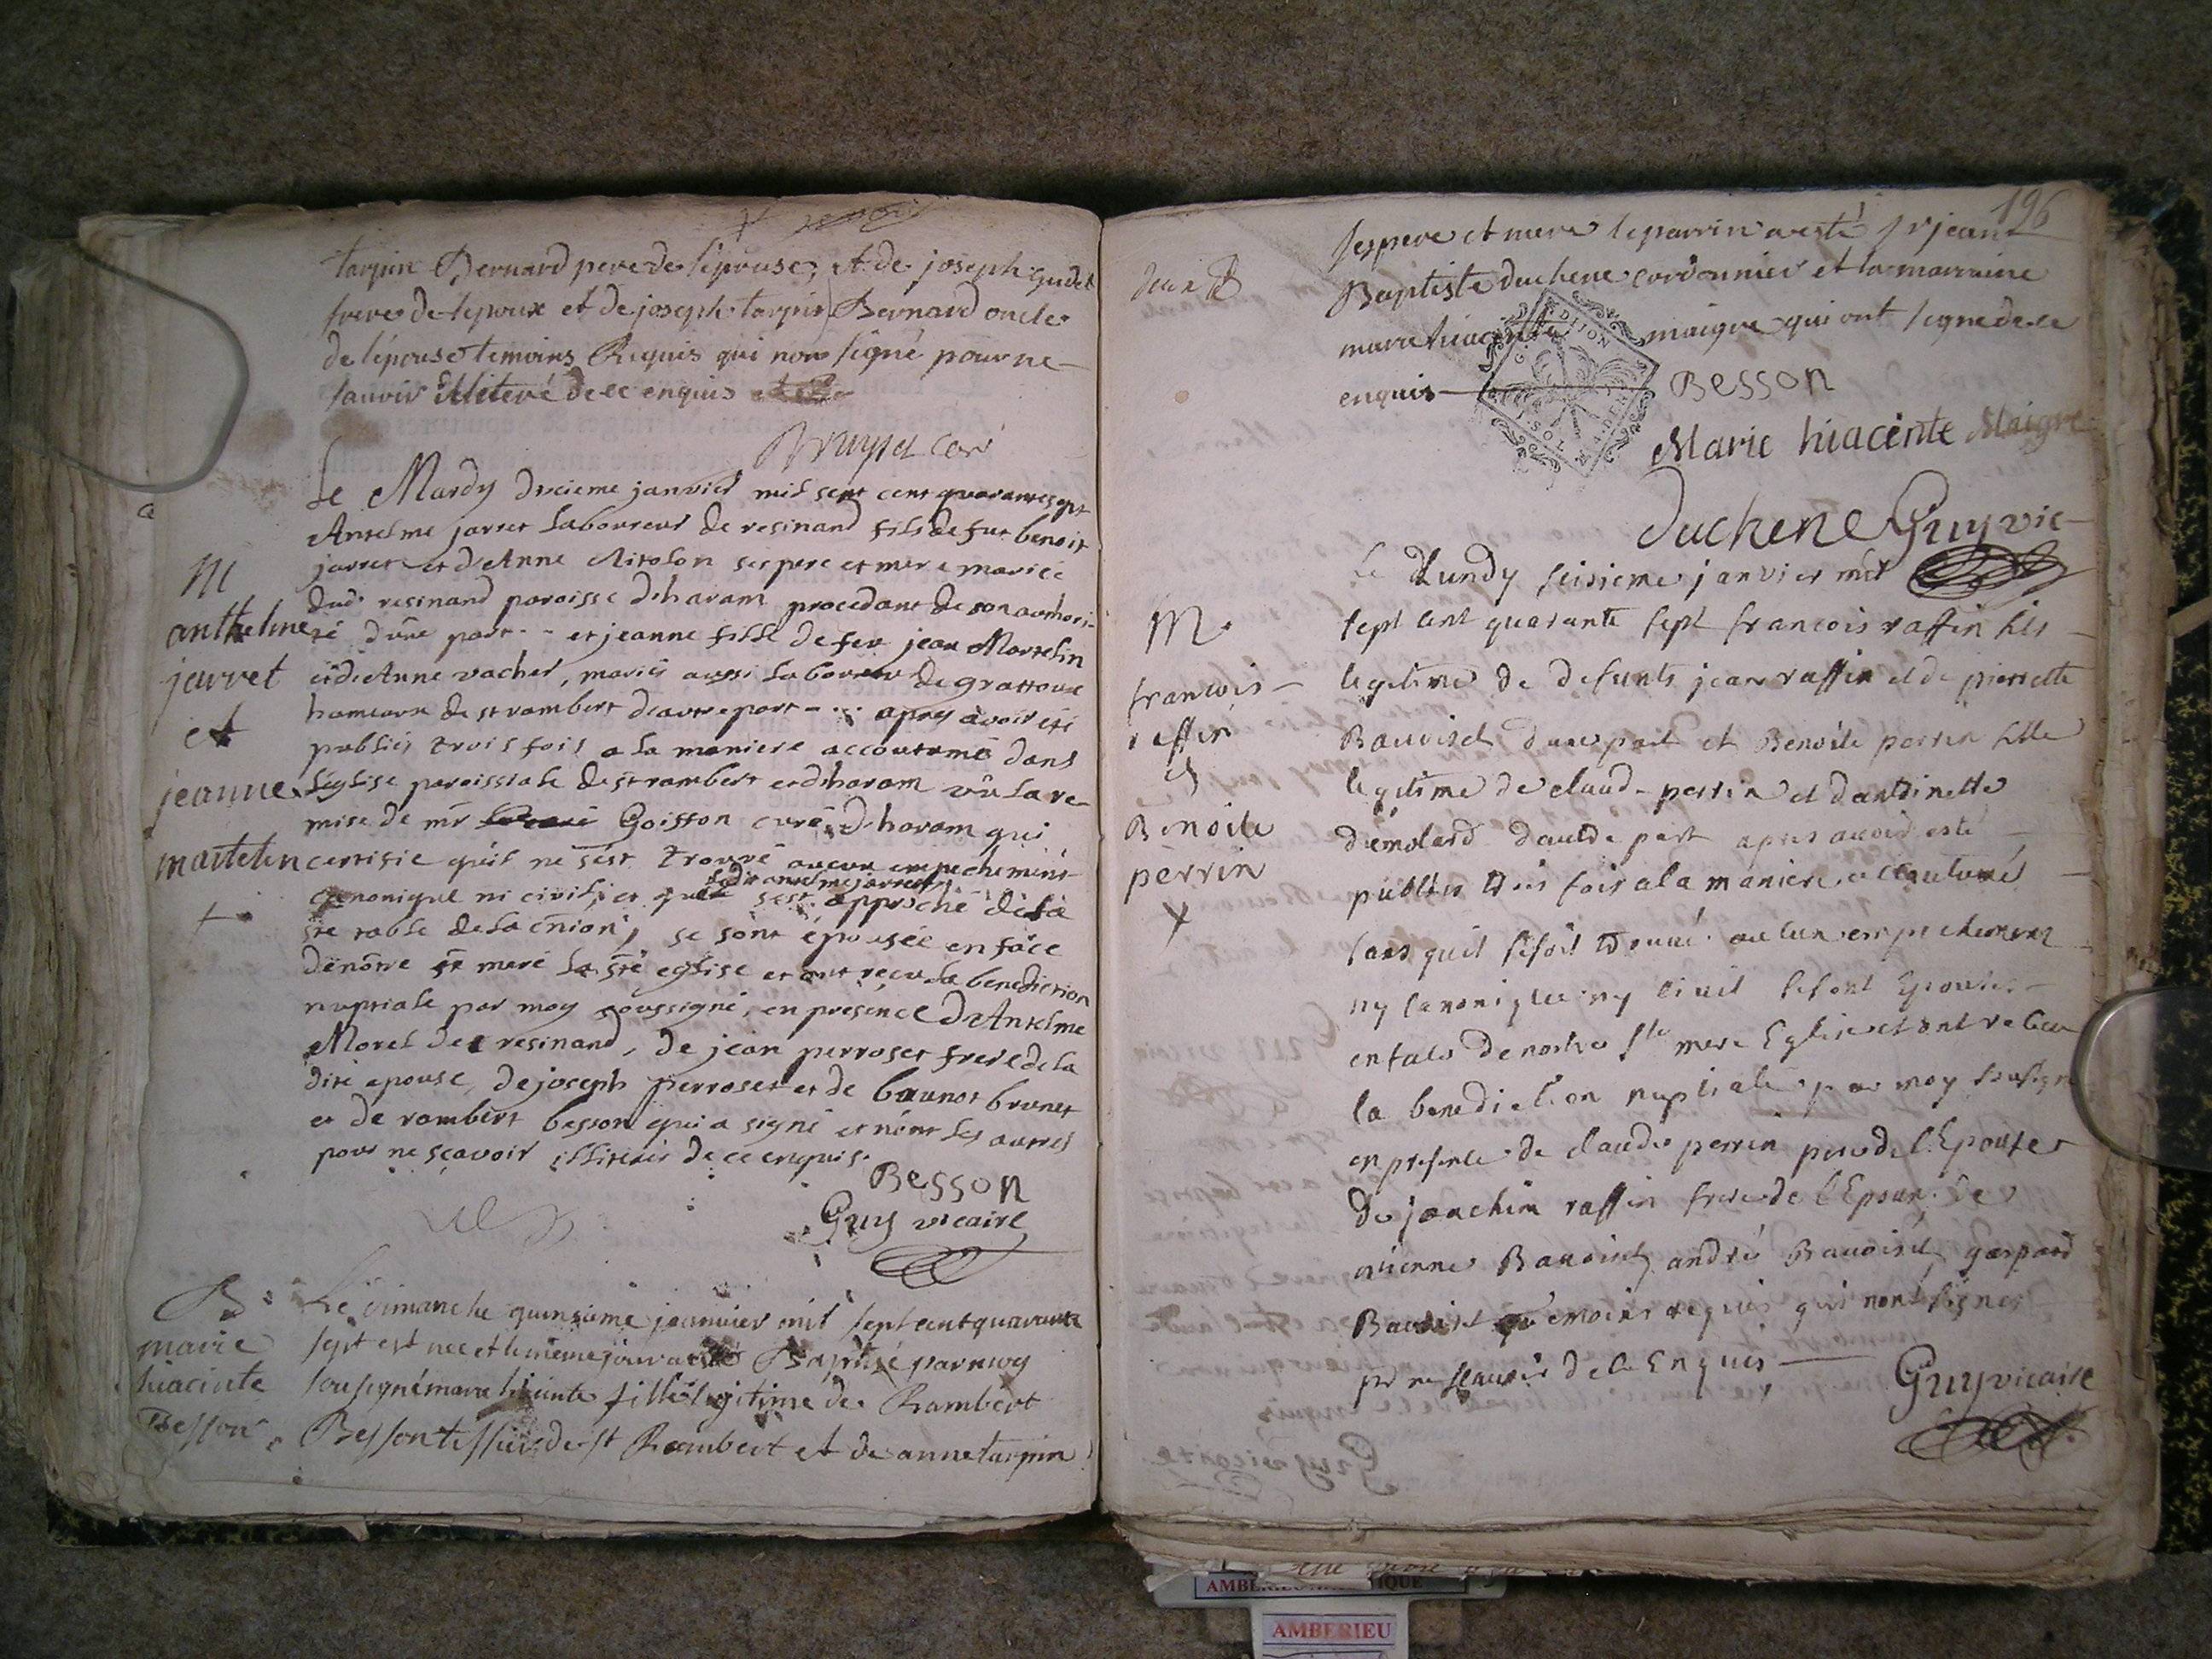 tarpin Bernard pere de lepouse, et de joseph
frere de lepoux et de joseph tarpin Bernard oncle
de lépouse temoins Requis qui nont signé pour ne
sauvoir de ce enquis
Bruyset curé
Le Mardy dixieme janvier mil sept cent quarante sept
Antelme jarret laboureur de resinand fils de fut benoit
jarret et d'Anne Mitolon ses pere et mere mariée
dud. resinand paroisse d'haram procedant de son authori-
té d'une part -- et jeanne fille de feu jean Martelin
et d'Anne vacher, mariés aussi laboureur de grattoux
hameaux de st rambert d'autre part -... apres avoir été
publiés trois fois a la maniere accoutumé dans
l'église paroissiale de st rambert et d'haram vû la re-
mise de mr Goisson curé d'haram qui
certifie qu'il ne s'ést trouvé aucun empechement
canonique ni civil, et que ledit antelme jarret s'est approché de la
ste table de la cnion, se sont épousée en face
de nôtre st mere la ste eglise et ont reçu la benediction
nuptiale par moy soussigné, en presence d'Antelme
Morel de resinand, de jean perroset frere de la
dite epouse, de joseph perroset et de brunot brunet
et de rambert besson qui a signé et nont les autres
pour ne sçavoir illiterés de ce enquis.
Besson
Guy vicaire
M
anthelme
jarret
et
jeanne
martelin
B
marie
hiacinte
Besson
Le dimanche quinsieme janvier mil sept cent quarante
sept est nee et le même jour a esté Baptisé par moy
sousigné marie hiacinte fille légitime de Rambert
Besson tessier de st Rambert et de anne tarpin
196
ses pere et mere le parrin a esté sr jean
Baptiste duchene cordonnier et la marraine
marie hiacinte maigre qui ont signe de ce
enquis
Besson
Marie hiacinte Maigre
Duchene Guy vic
Le Lundy seisieme janvier mil
sept cent quarante sept francois raffin fils
legitime de defunts jean raffin et de pierrette
Bauviset d'une part et Benoite perrin fille
legitime de claude perrin et dantoinette
démolard d'aultre part apres avoir esté
publies trois fois a la maniere accoutumé
sans quil se soit trouvé aucun empechement
ny canonique ny civil se sont Epousés
en face de nostre ste mere Eglise et ont receu
la benediction nuptiale par moy sousigné
en presence de claude perrin pere de l'Epouse
de joachim raffin frere de l'Epoux de
etienne Bauviset, andré Bauviset, gaspard
Bauviset temoins requis qui nont signes
pr ne scavoir de ce Enquis
Guy vicaire
M.
francois
raffin
et
Benoite
perrin
AMBERIEU